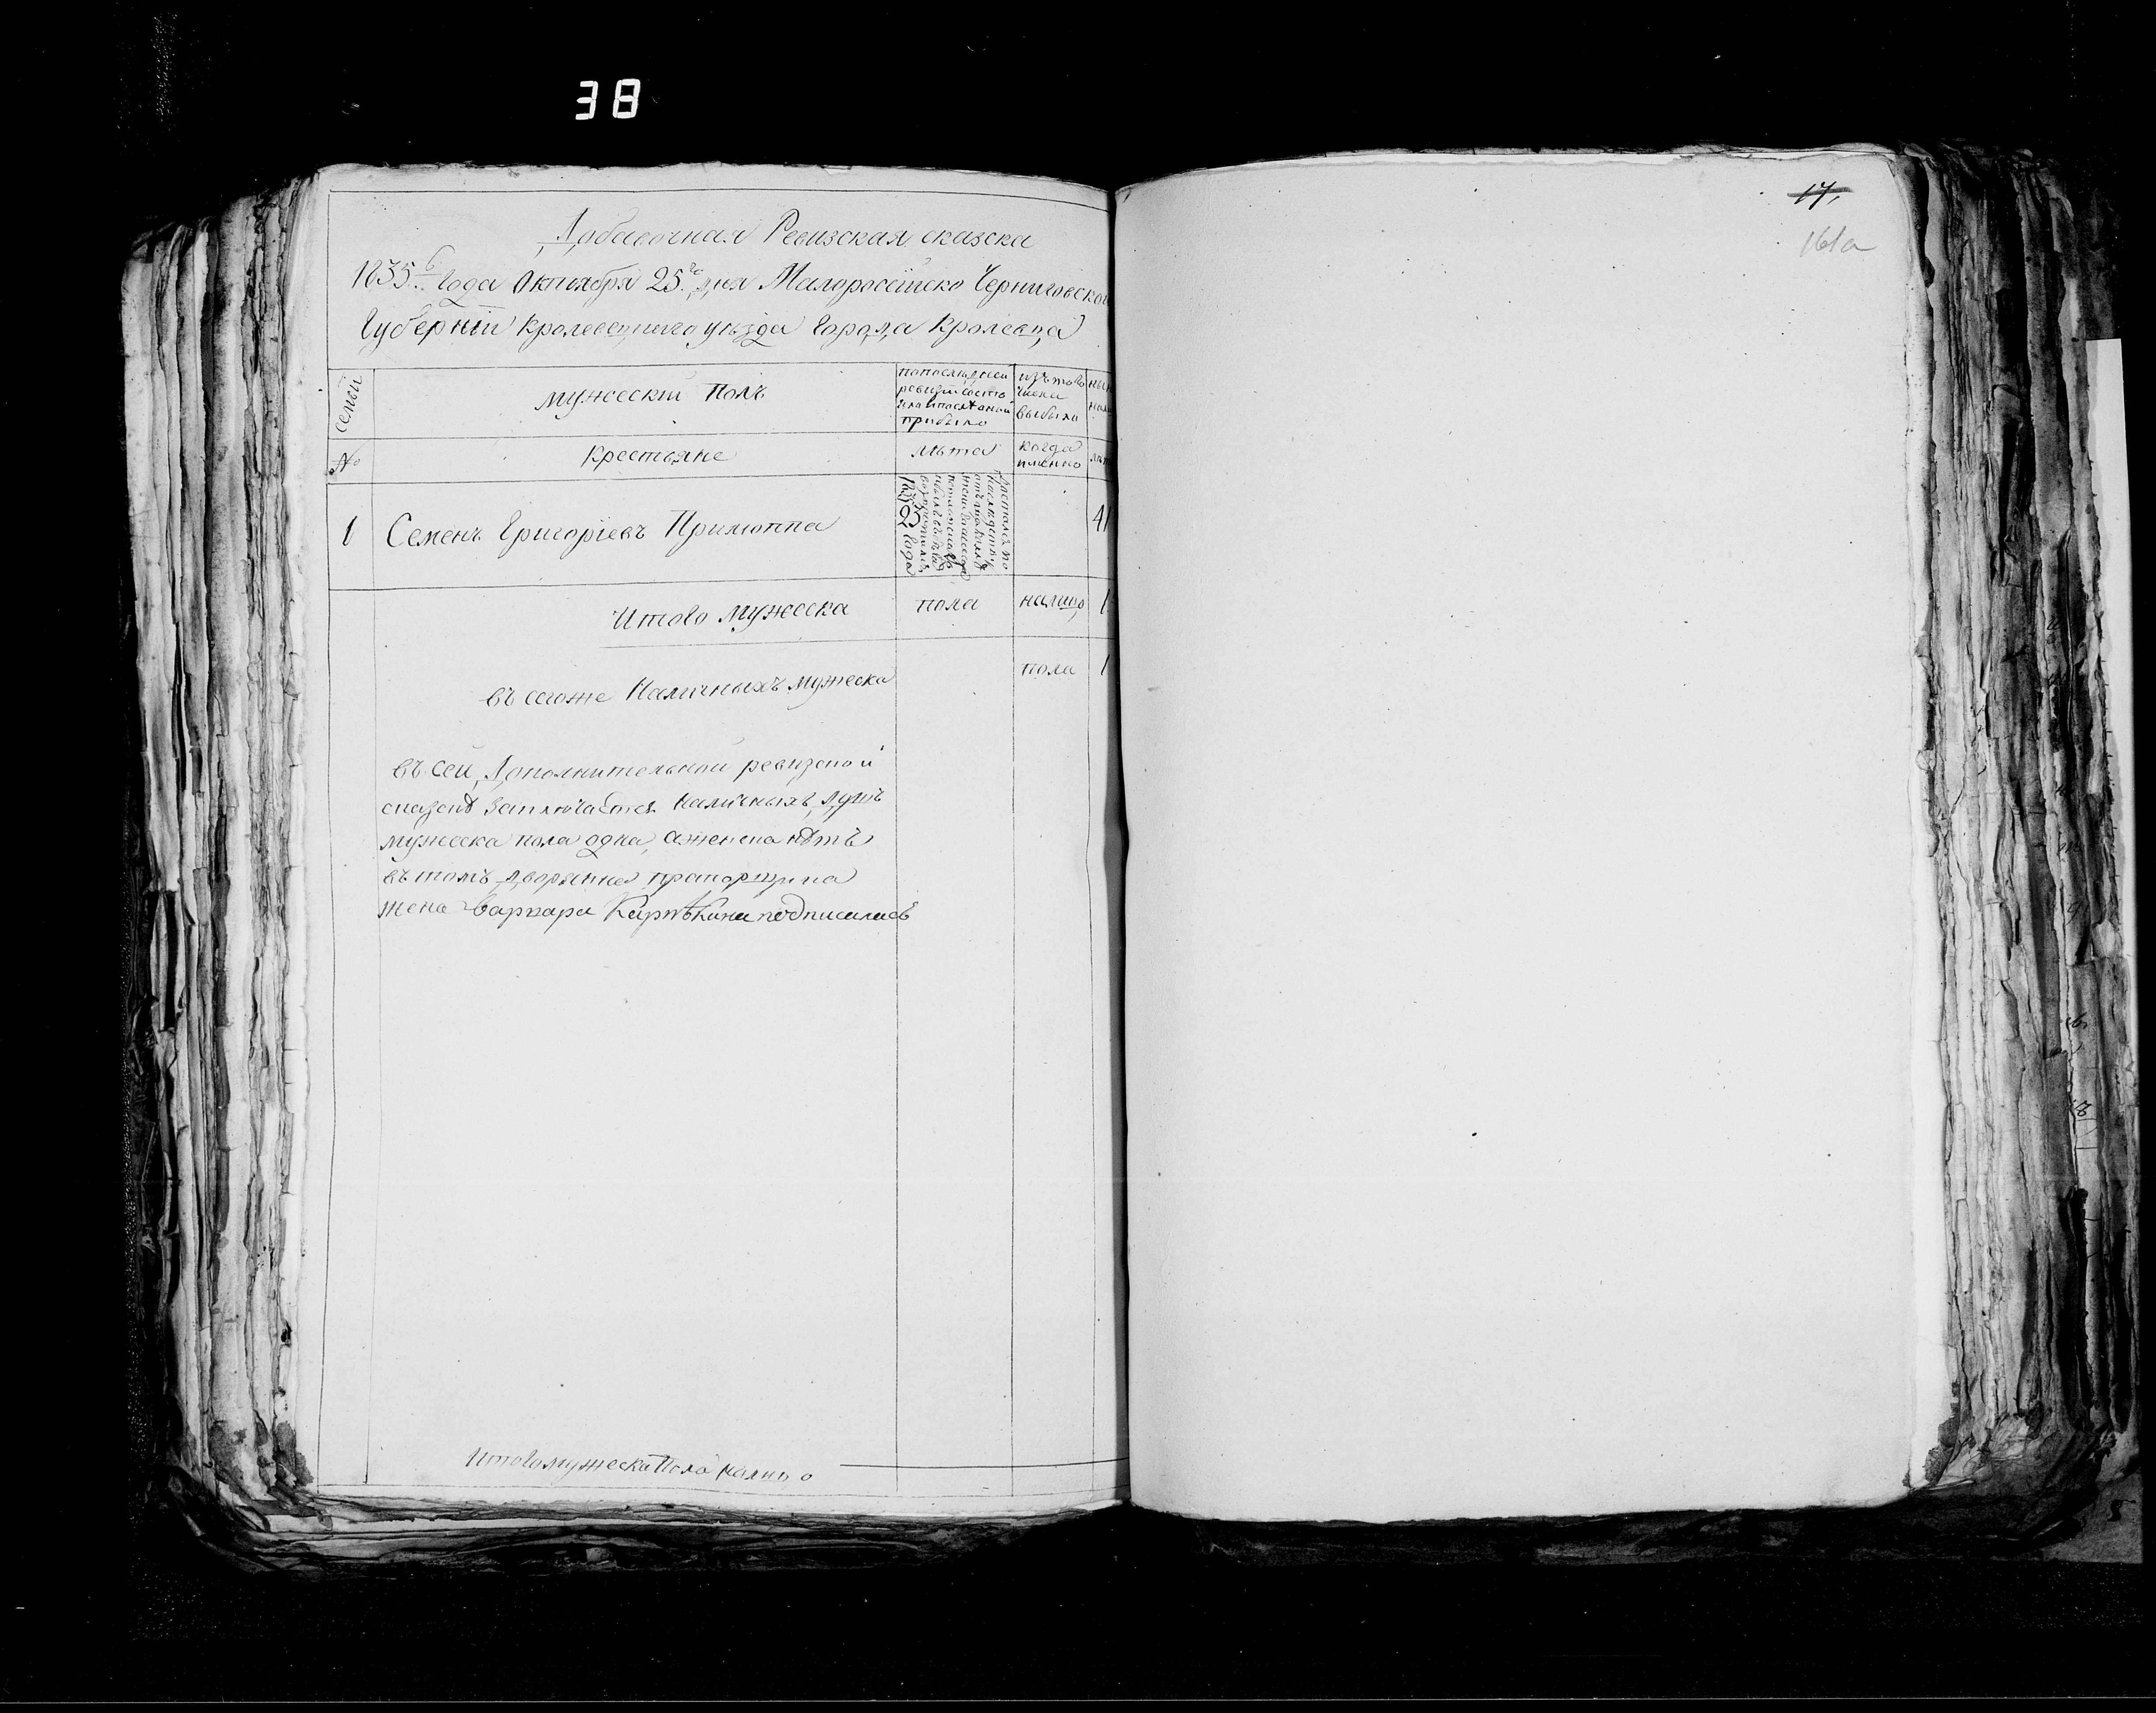 38
Добавочная Ревизская сказска
1835го года Октября 25го дня Малоросѣйско Черниговской
Губернїи Кролевецкаго уѣзда Города Кролевца
семьи
мужескїй Полъ
попослѣдней
ревизїи состо
яло и послѣ оной
прибыло
изътого
числа
выбыло
№
Крестьяне
лѣта
когда
именно
1
Семенъ Григорїевъ Прилюпка
41
Итого мужеска
пола
налицо
1
въ сегоже Наличныхъ мужеска
пола
1
въ сей Дополнительной ревизской
сказкѣ заключается Наличныхъ душъ
мужеска пола одна, аженска нѣтъ
въ томъ дворянка прапорщика
жена Варвара подписалась
Итого мужеска Пола налицо
17,
161а